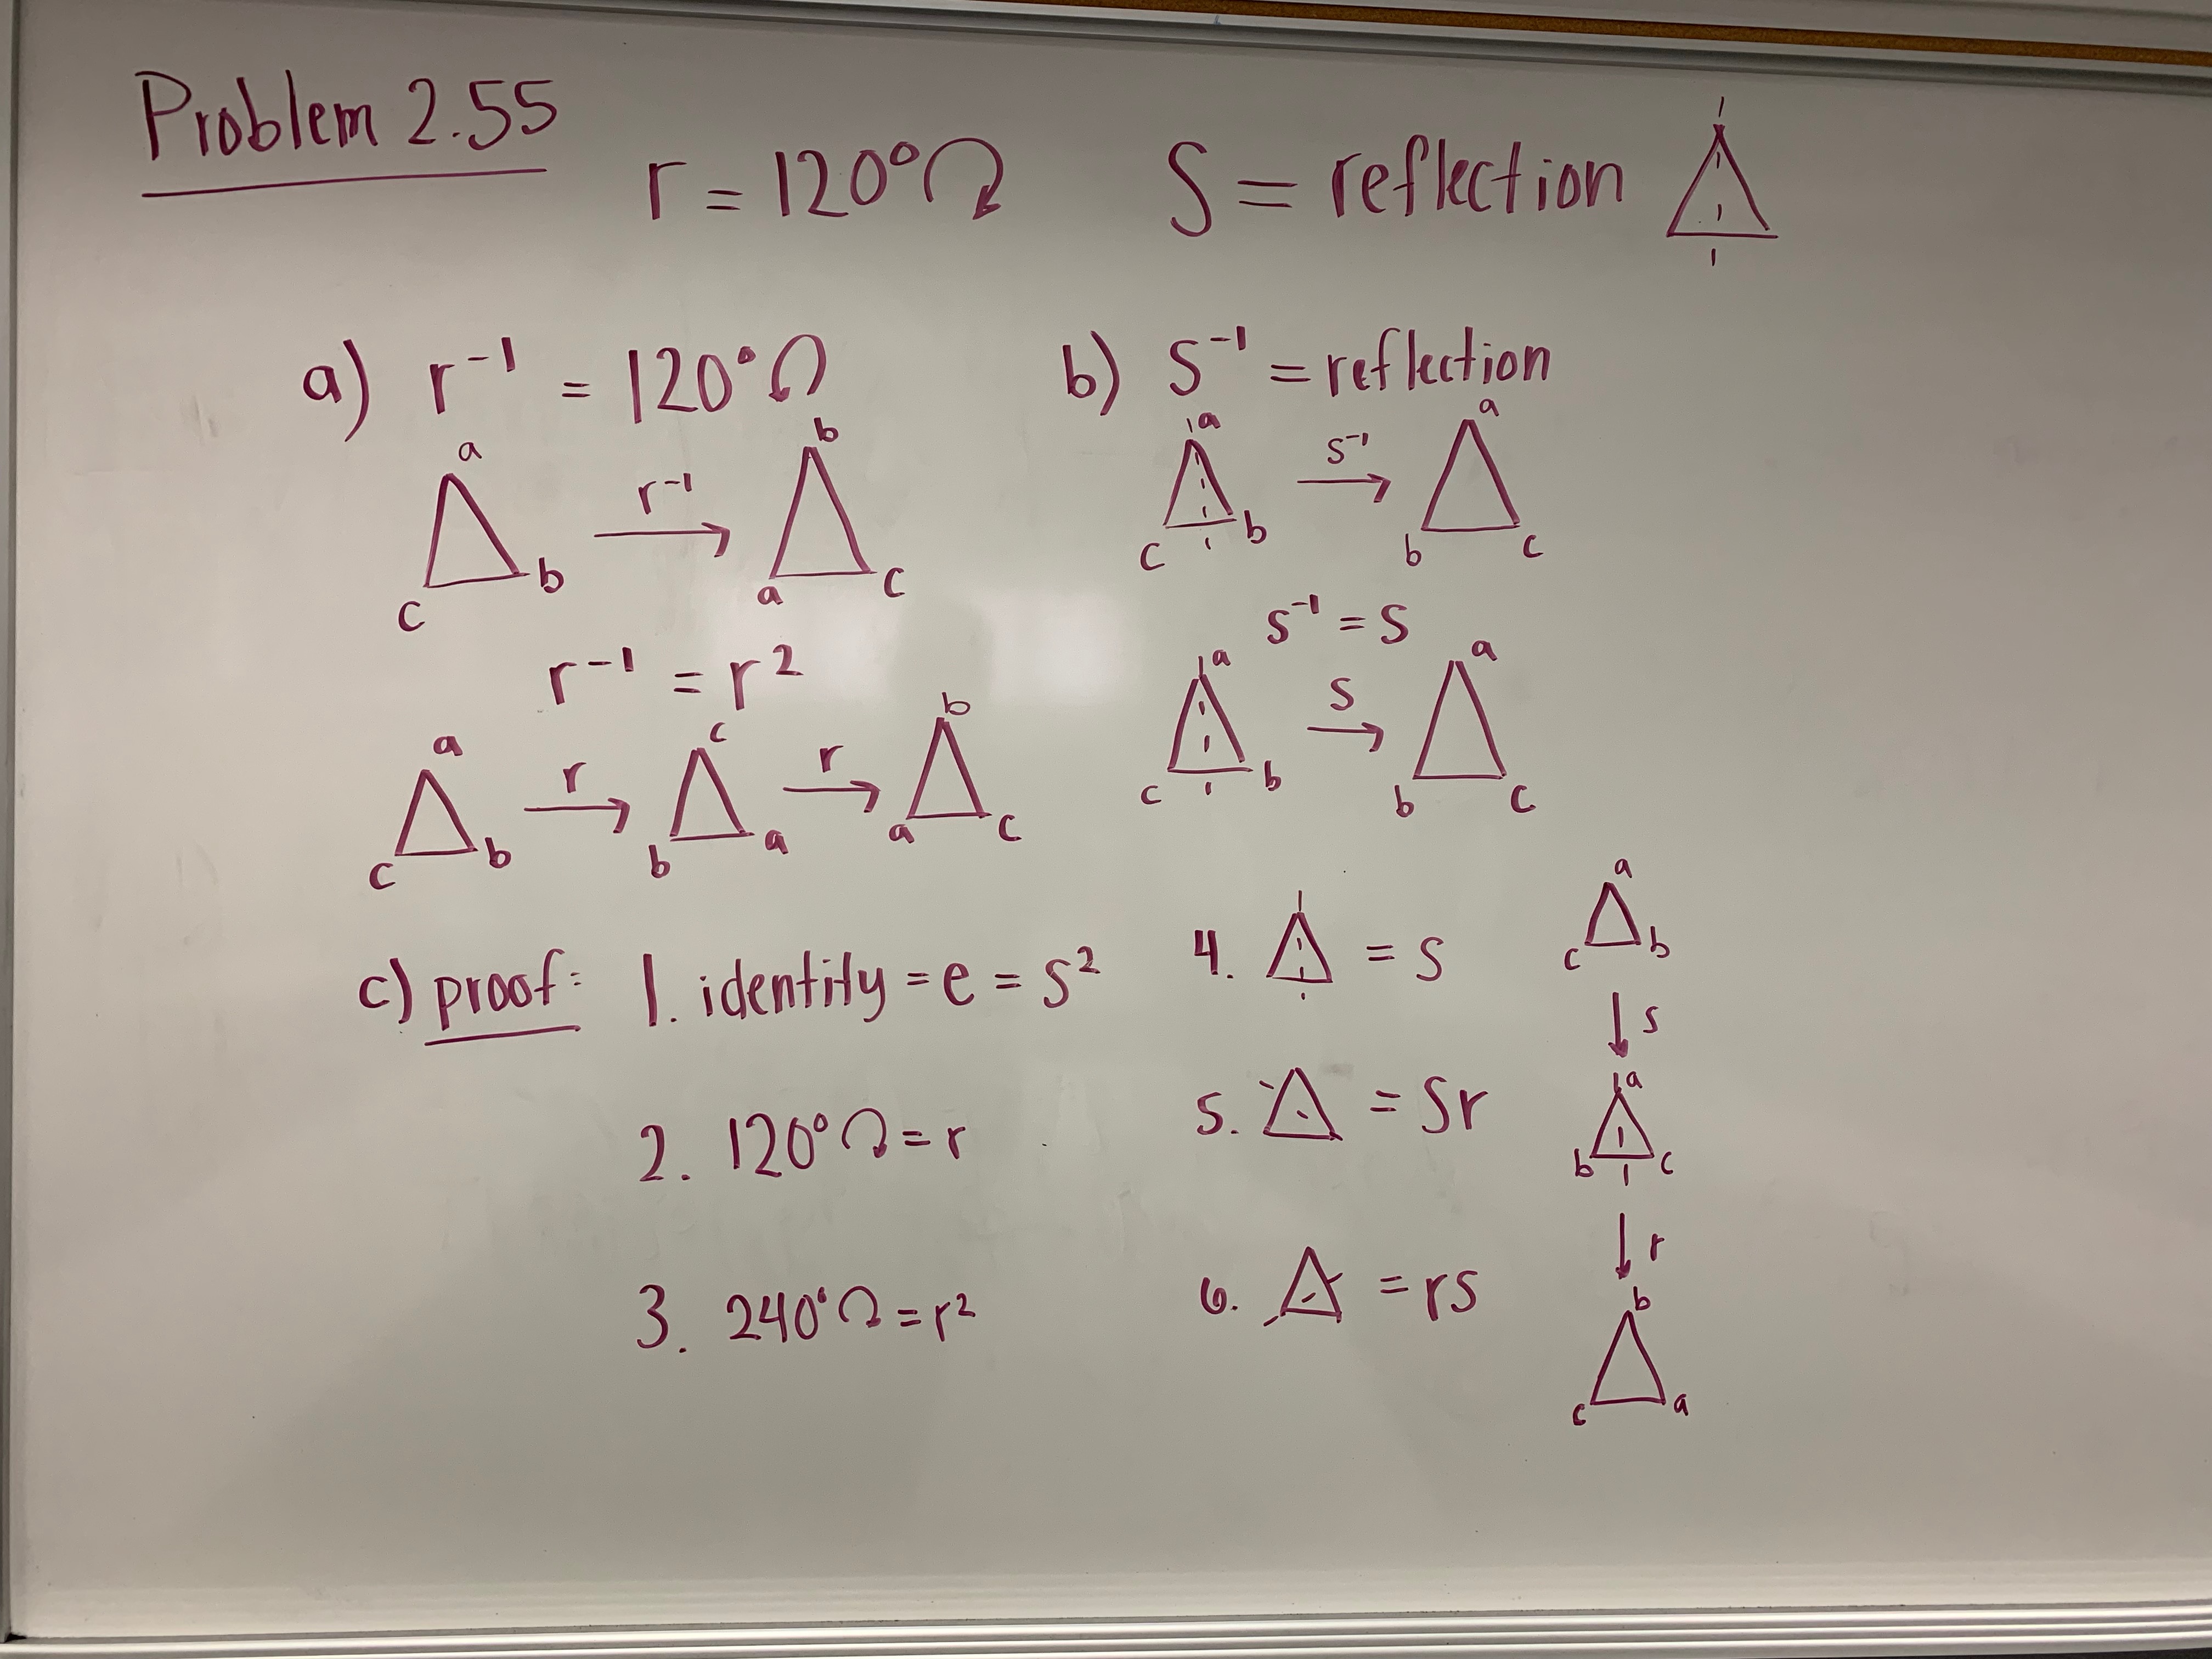 Problem 2.55
r = 120° ↻
S = reflection
a) r⁻¹ = 120° ↺
a
c b
r⁻¹
b
a c
r⁻¹ = r²
a
c b
r
c
b a
r
b
a c
b) S⁻¹ = reflection
a
c b
s⁻¹
a
b c
s⁻¹ = s
a
c b
s
a
b c
c) proof: 1. identity = e = s²
2. 120° ↻ = r
3. 240° ↻ = r²
4. △ = s
5. △ = sr
6. △ = rs
a
c b
↓ s
a
b c
↓ r
b
c a